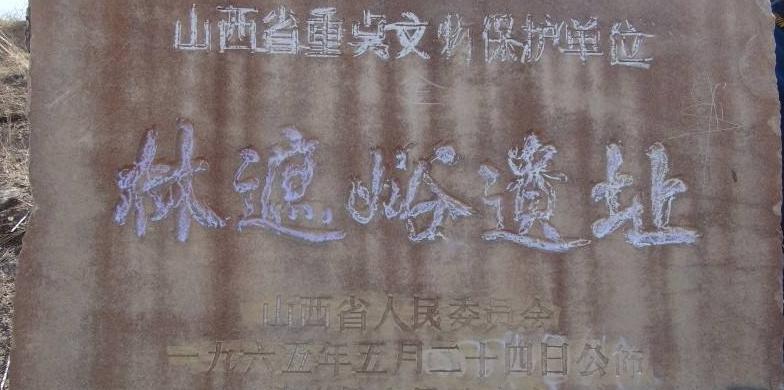 山西省重点文物保护单位
林遮峪遗址
山西省人民委员会
一九六五年五月二十四日公佈